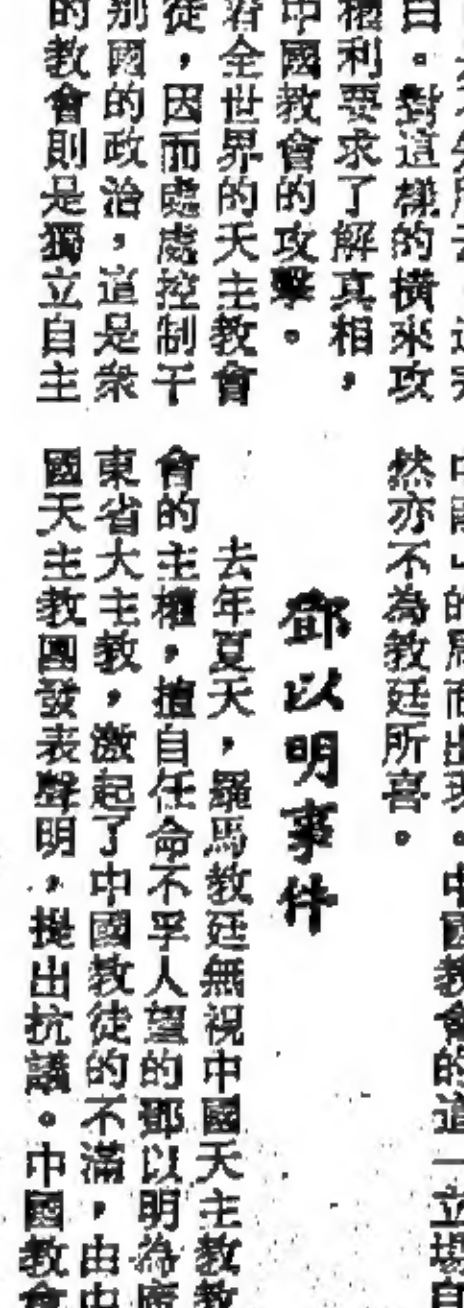 白。對這樣的橫來攻
權利要求了解真相，
中國教會的攻擊。
着全世界的天主教會
徒，因而處處控制干
別國的政治，這是衆
的教會則是獨立自主
而出現。中國教會的這一立場自
然亦不為教廷所喜。
鄧以明事件
去年夏天，羅馬教廷無視中國天主教教
會的主權，擅自任命不孚人望的鄧以明為廣
東省大主教，激起了中國教徒的不滿，由中
國天主教團發表聲明，提出抗議。中國教會